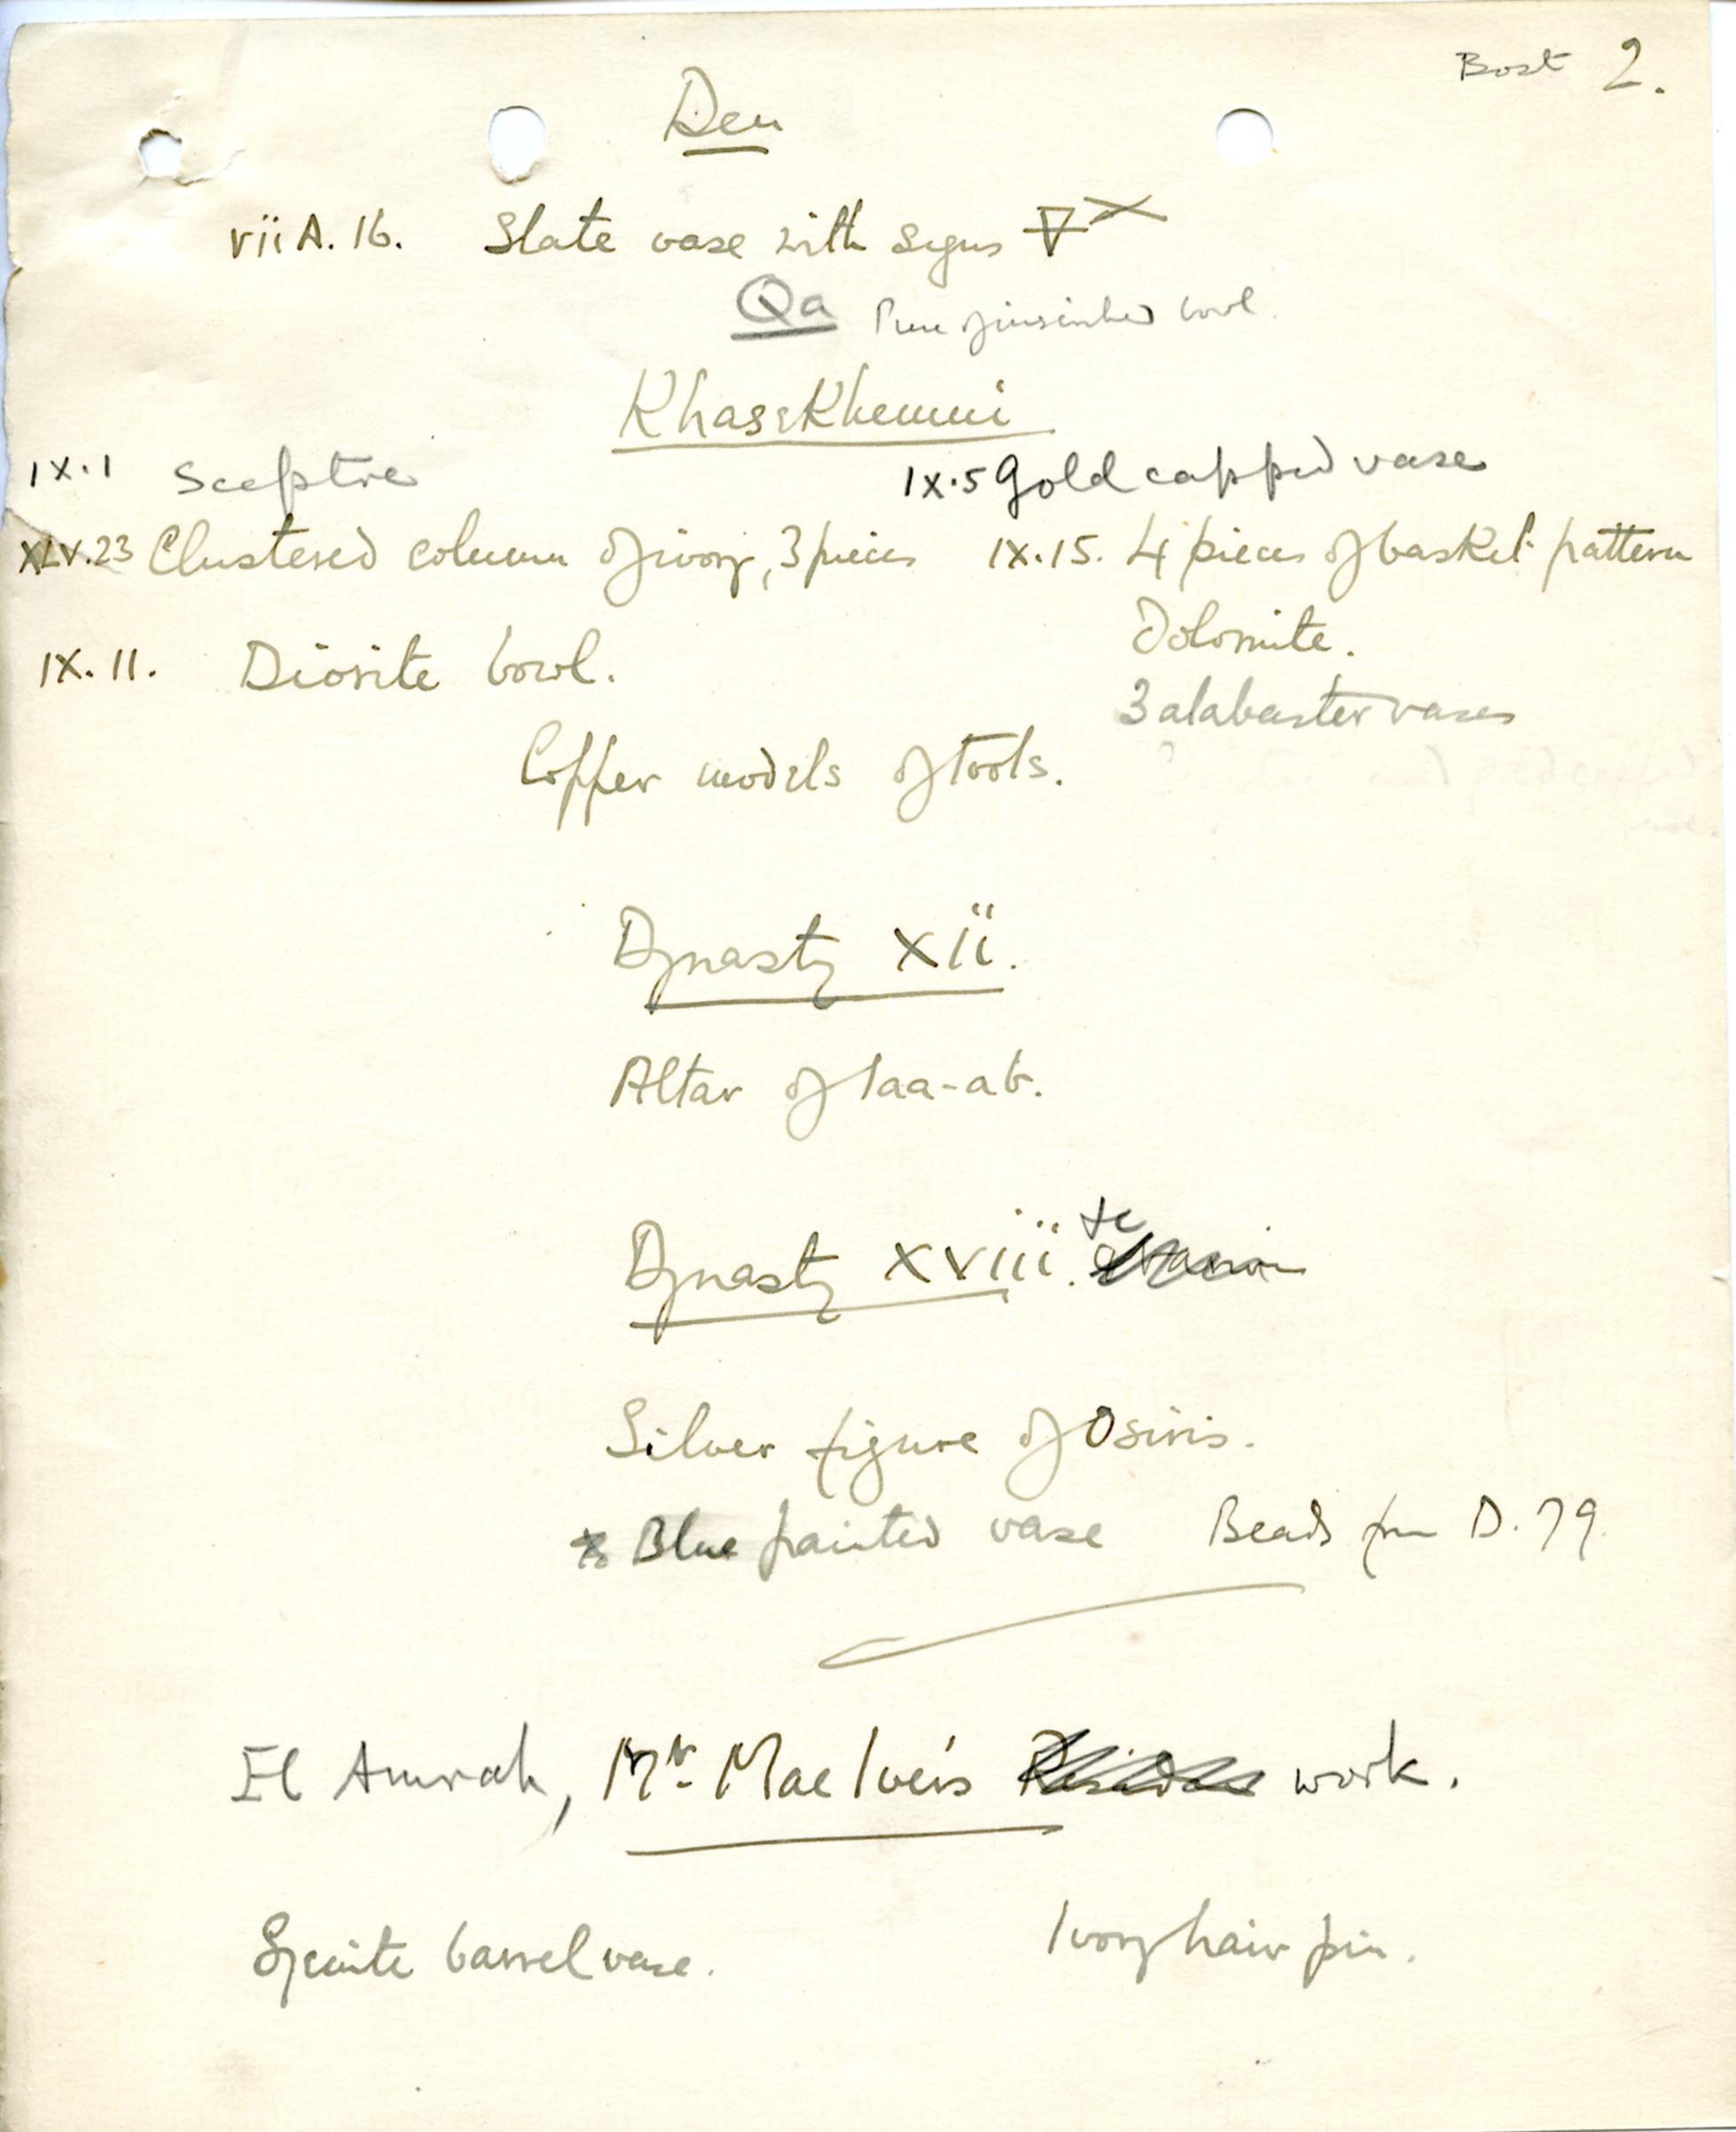 Bost 2.
Den
vii A. 16. Slate vase with signs
Qa Piece of inscribed bowl.
Khasekhemui
IX.1 Sceptre IX.5 Gold capped vase
XLV.23 Clustered column of ivory, 3 pieces IX.15. 4 pieces of basket pattern
Dolomite.
IX.11. Diorite bowl.
3 alabaster vases
Copper models of tools.
Dynasty XII.
Altar of Iaa-ab.
Dynasty XVIII. &c
Silver figure of Osiris.
Blue painted vase Beads from D.79.
El Amrah, Mr. MacIver's work.
Syenite barrel vase. Ivory hair pin.